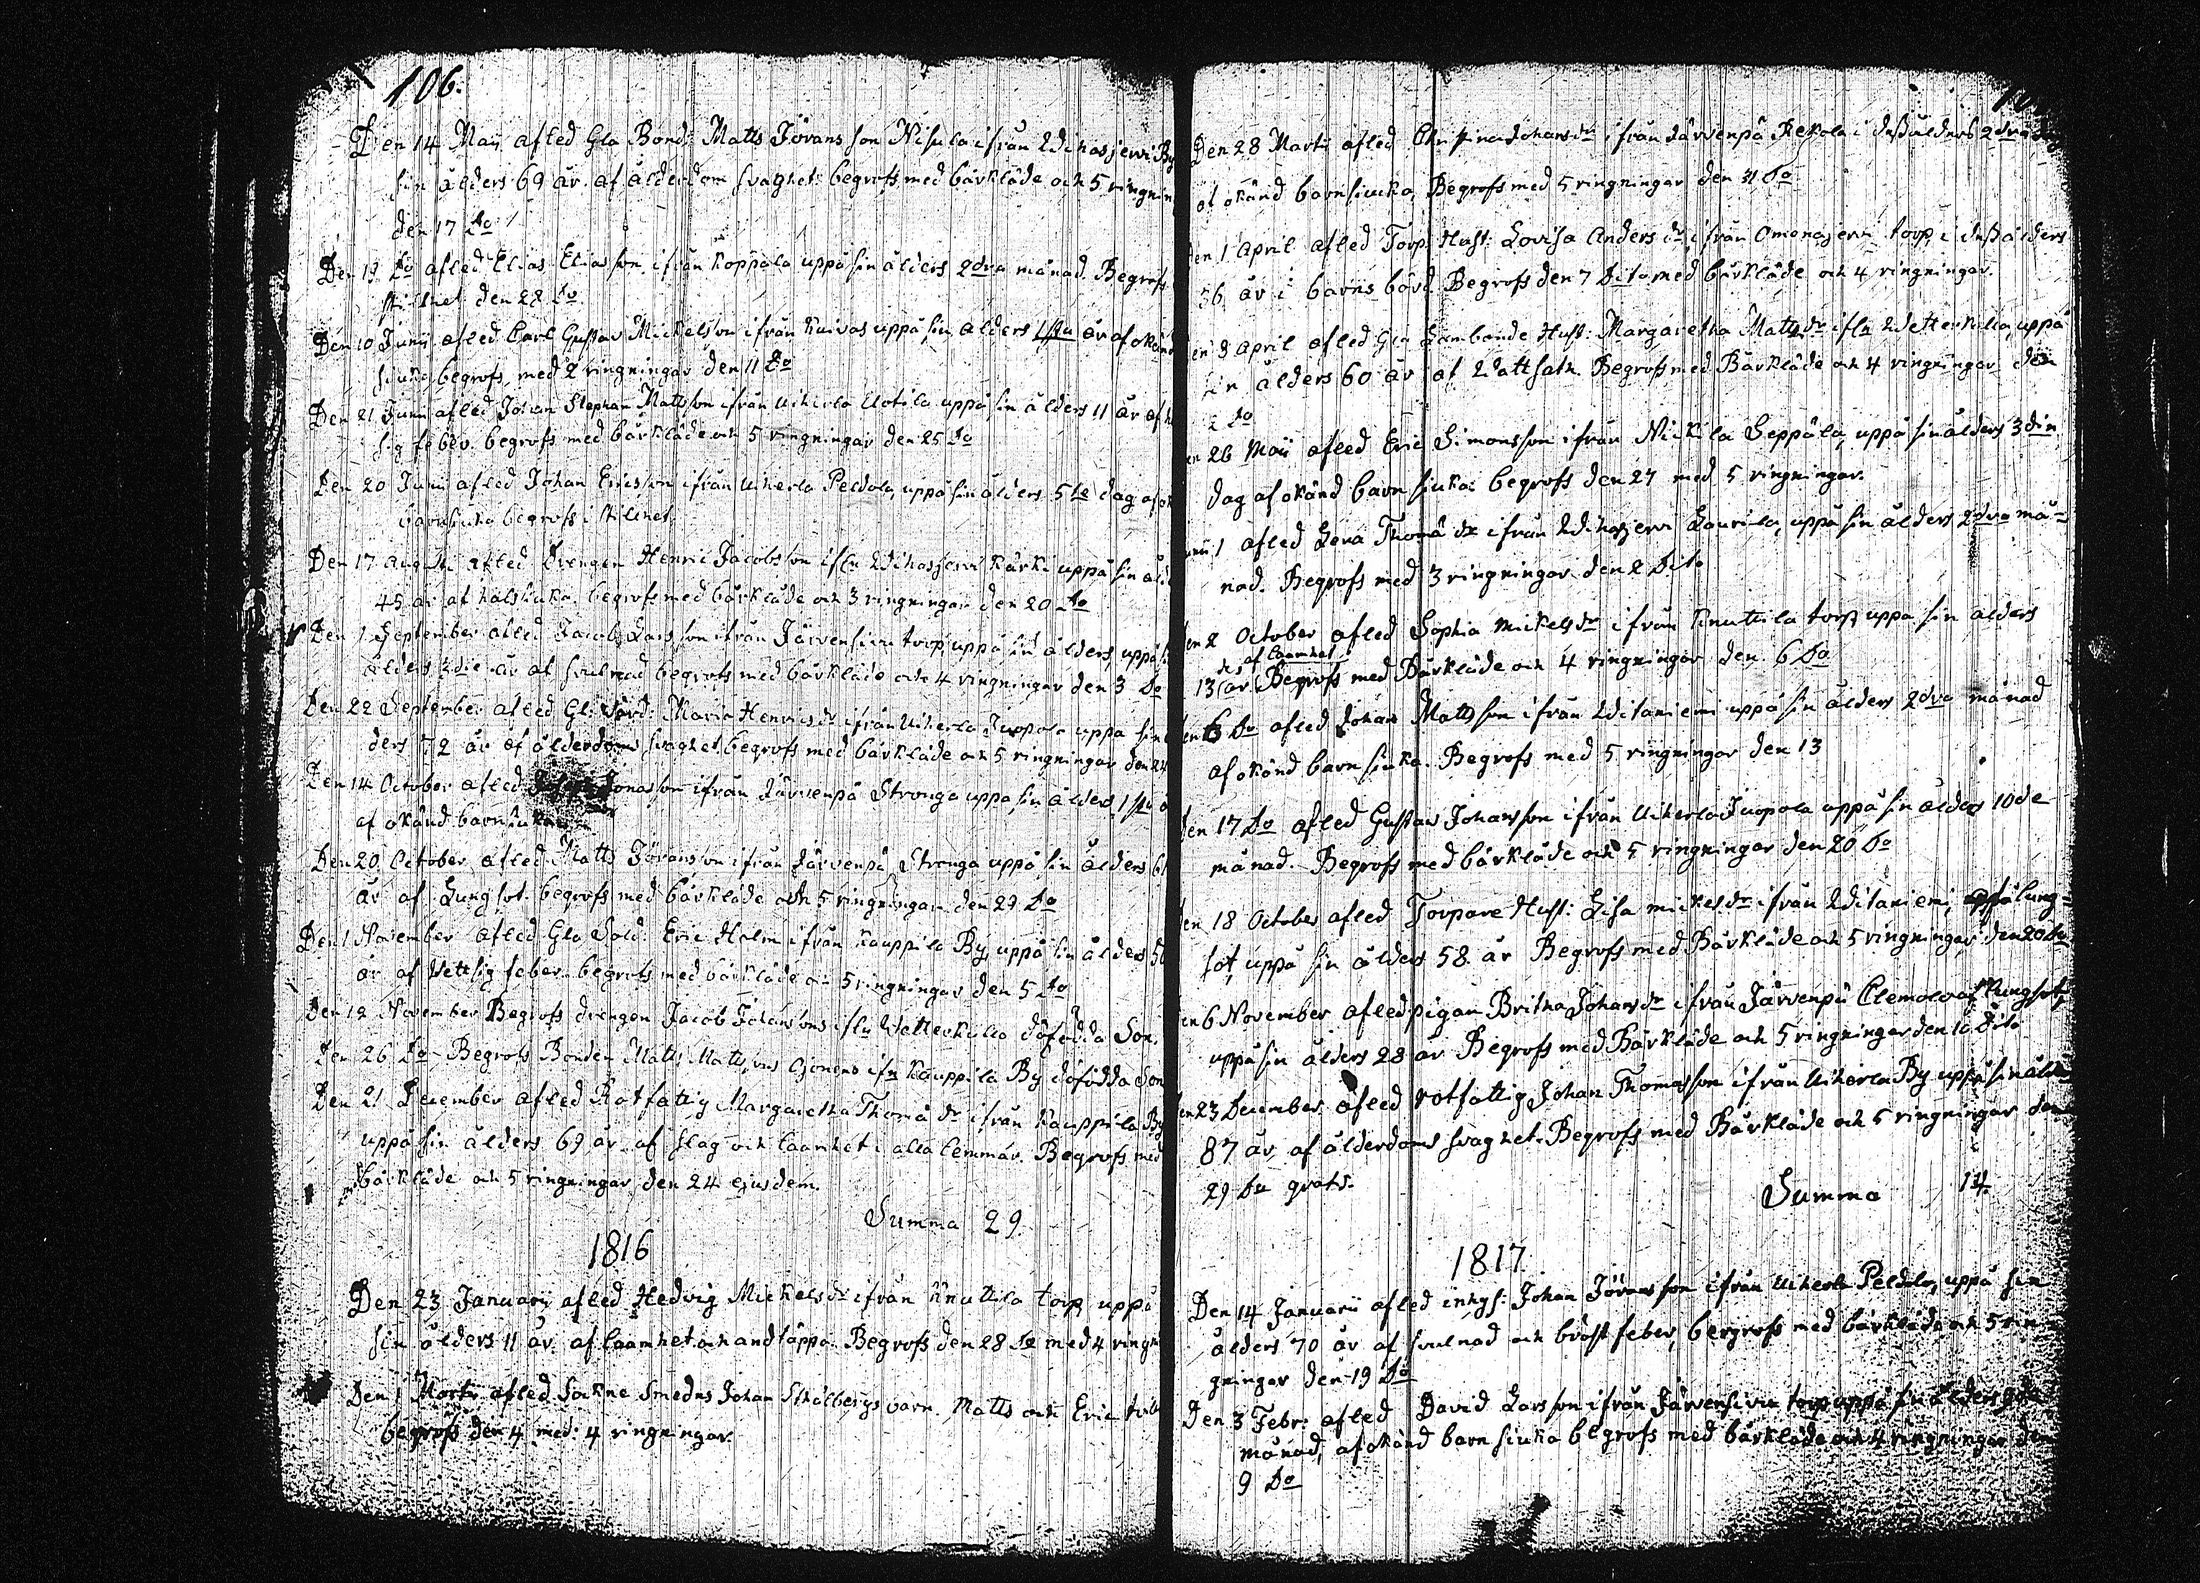 106.
Den 14 Maii afled Gla Bond: Matts Jörans son Nisula ifrån Wihasjerwi By
sin ålders 69 år af ålderdom svaghet: begrofs med bårkläde och 5 ringnin
den 17 do
Den 19 do afled Elias Elias son ifrån Koppala uppå sin ålders 2dra månad. Begrofs
stilhet den 28 do
Den 10 Junii afled Carl Gustav Mickelsson ifrån Kuivas uppå sin ålders 1sta år af okänd
siuka begrofs med 2 ringningar den 11 do
Den 21 Junii afled Johan Stephan Mattsson ifrån Uiherla Uotila uppå sin ålders 11 år af
sig feber. begrofs med bårkläde och 5 ringningar den 25 do
Den 20 Junii afled Johan Ericsson ifrån Uiherla Peldola, uppå sin ålders 5te dag af
barnsiuka begrofs i stilhet.
Den 17 Augusti afled Drengen Henric Jacobsson ifrn Wihasjerwi Kärki uppå sin åld
45 år af halssiuka. begrofs med bårkläde och 3 ringningar den 20 do
Den 1 September afled Jacob Larsson ifrån Järvensivu torp uppå sin ålders, uppå si
ålders 3die år af svulnad begrofs med bårkläde och 4 ringningar den 3 do
Den 22 September afled Gl: Värd: Maria Henricsdr ifrån Uiherla Juopola uppå sin
ders 72 år af ålderdoms svaghet begrofs med bårkläde och 5 ringningar den 24
Den 14 October afled Jonasson ifrån Järvenpä Stronga uppå sin ålders 1sta
af okänd barnsiuka
Den 20 October afled Matts Jöransson ifrån Järvenpä Stronga uppå sin ålders 61
år af Lungsot. begrofs med bårkläde och 5 ringningar den 29 do
Den 1 November afled Gla Sold: Eric Holm ifrån Kauppila By, uppå sin ålders 50
år af Hettsig feber. begrofs med bårkläde och 5 ringningar den 5 do
Den 12 November Begrofs drengen Jacob Johanssons ifrn Wetterkulla döfödda Son.
Den 26 do Begrofs Bonden Matts Mattssons Ojonens ifrn Kauppila By döfödda Son
Den 21 December afled Rotfattig Margaretha Thomä dr ifrån Kauppila By
uppå sin ålders 69 år af slag och laamhet i alla lemmar. Begrofs med
bårkläde och 5 ringningar den 24 ejusdem.
Summa 29
1816
Den 23 Januarii afled Hedvig Mickelsdr ifrån Knuttila torp uppå
sin ålders 11 år af laamhet och andtäppa. Begrofs den 28 do med 4 ringn
Den 1 Martii afled Sockne Smedns Johan Stholbergs barn. Matts och Eric
begrofs den 4 med: 4 ringningar.
Den 28 Martii afled Christina Johansdr ifrån Järvenpä Rekola i dess ålders 2dra
af okänd barnsiuka, Begrofs med 5 ringningar den 31 do
en 1 April afled Torp: Hust: Lovisa Anders dr ifrån Omenajerwi torp i dess ålders
36 år i barns börd. Begrofs den 7 Dito med bårkläde och 4 ringningar.
en 3 April afled Gla Lambonde Hust: Margaretha Matts dr ifrn Wetterkulla, uppå
in ålders 60 år af Wattsoth. Begrofs med Bårkläde och 4 ringningar den
2 do
en 26 Maii afled Eric Simonsson ifrån Nickila Seppälä, uppå sin ålders 3din
dag af okänd barn siuka begrofs den 27 med 5 ringningar.
unii 1 afled Lena Thomä dr ifrån Wihasjerwi Laurila, uppå sin ålders 2dra må=
nad. Begrofs med 3 ringningar den 2 Dito
en 2 October afled Sophia Mickelsdr ifrån Knuttila torp uppå sin ålders
af laamhet
13 des år Begrofs med Bårkläde och 4 ringningar den 6 Do
en 6 Do afled Johan Mattsson ifrån Witaniemi uppå sin ålders 2dra månad
af okänd barn siuka. Begrofs med 5 ringningar den 13
den 17 Do afled Gustav Johansson ifrån Uiherla Juopola uppå sin ålders 10de
månad. Begrofs med bårkläde och 5 ringningar den 20 Do
en 18 October afled Torpare Hust: Lisa Mickelsdr ifrån Witaniemi, af lung=
sot, uppå sin ålders 58 år Begrofs med Bårkläde och 5 ringningar den 20 Do
en 6 November afled pigan Britha Johansdr ifrån Järvenpä Clemola af lungsot,
uppå sin ålders 28 år Begrofs med Bårkläde och 5 ringningar den 10 Dito
en 23 December afled rotfattig Johan Thomasson ifrån Uiherla By uppå sin ålde
87 år af ålderdoms svaghet. Begrofs med Bårkläde och 5 ringningar den
29 Do gratis.
Summa 14
1817
Den 14 Januarii afled inhys: Johan Jöransson ifrån Uiherla Peldola, uppå sin
ålders 70 år af svulnad och bröst feber, begrofs med bårkläde och 5 rin
gningar den 19 Do
Den 3 Febr: afled David Larsson ifrån Järvensivu torp uppå sin ålders
månad, af okänd barn siuka begrofs med bårkläde och 4 ringningar den
9 Do